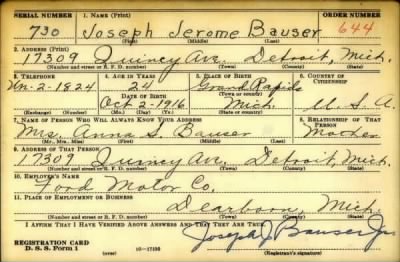 SERIAL NUMBER 1. NAME (Print) ORDER NUMBER
730 Joseph Jerome Bauser 644
(First) (Middle) (Last)
2. ADDRESS (Print)
17309 Quincy Ave. Detroit, Mich.
(Number and street or R. F. D. number) (Town) (County) (State)
3. TELEPHONE 4. AGE IN YEARS 5. PLACE OF BIRTH 6. COUNTRY OF CITIZENSHIP
Un-2-1824 24 Grand Rapids
DATE OF BIRTH (Town or county)
Oct 2-1916 Mich. U.S.A.
(Exchange) (Number) (Mo.) (Day) (Yr.) (State or country)
7. NAME OF PERSON WHO WILL ALWAYS KNOW YOUR ADDRESS 8. RELATIONSHIP OF THAT PERSON
Mrs. Anna S. Bauser Mother
(Mr., Mrs., Miss) (First) (Middle) (Last)
9. ADDRESS OF THAT PERSON
17309 Quincy Av. Detroit, Mich.
(Number and street or R. F. D. number) (Town) (County) (State)
10. EMPLOYER'S NAME
Ford Motor Co.
11. PLACE OF EMPLOYMENT OR BUSINESS
Dearborn, Mich.
(Number and street or R. F. D. number) (Town) (County) (State)
I AFFIRM THAT I HAVE VERIFIED ABOVE ANSWERS AND THAT THEY ARE TRUE.
REGISTRATION CARD
D. S. S. Form 1 Joseph J Bauser Jr.
(Registrant's signature)